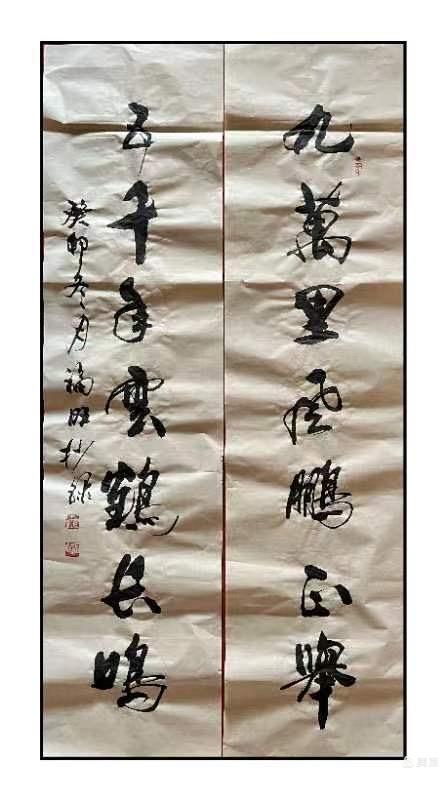 九萬里風鵬正舉
五千年雲鶴長鳴
癸卯冬月福旺抄錄